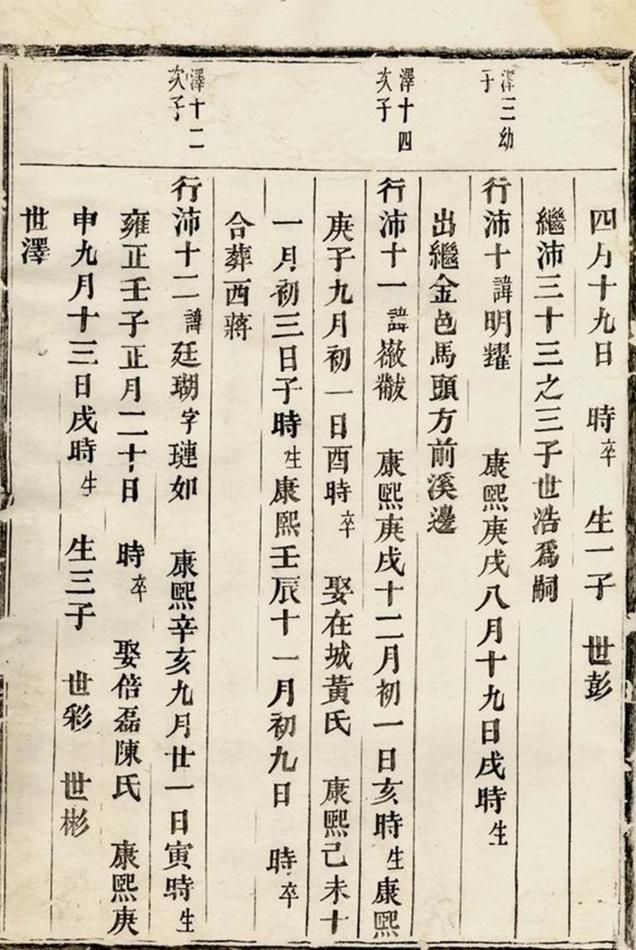 四月十九日　時卒　生一子　世彭
繼沛三十三之三子世浩爲嗣
澤三幼子
行沛十諱明耀　康熙庚戌八月十九日戌時生
出繼金邑馬頭方前溪邊
澤十四次子
行沛十一諱徽黻　康熙庚戌十二月初一日亥時生康熙
庚子九月初一日酉時卒　娶在城黃氏　康熙己未十
一月初三日子時生康熙壬辰十一月初九日　時卒
合葬西蔣
澤十二次子
行沛十二諱廷瑚字璉如　康熙辛亥九月廿一日寅時生
雍正壬子正月二十日　時卒　娶倍磊陳氏　康熙庚
申九月十三日戌時生　生三子　世彩　世彬
世澤